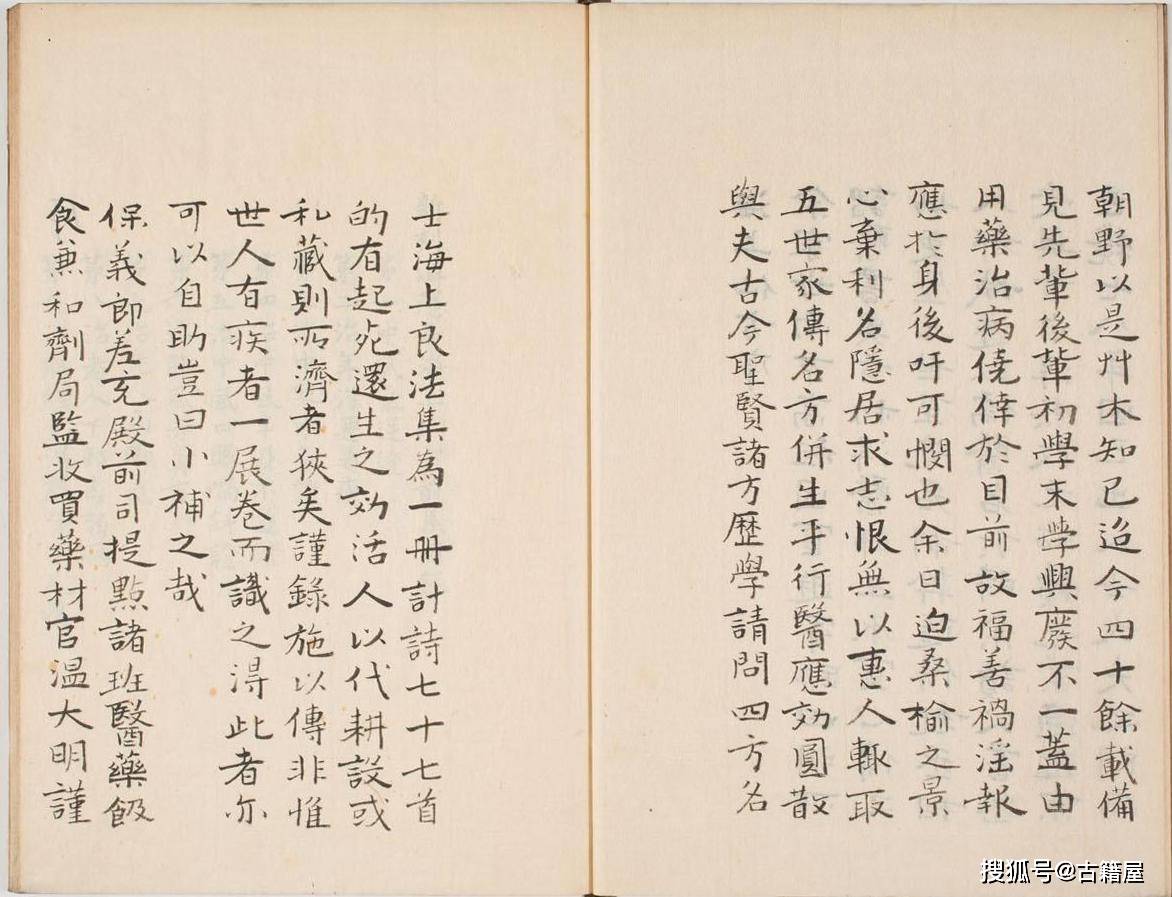 朝野以是艸木知已迨今四十餘載備
見先軰後軰初學末學興廢不一蓋由
用藥治病僥倖於目前故福善禍淫報
應扵身後吁可憫也余日迫桑榆之景
心棄利名隱居求志恨無以惠人輙取
五世家傳名方併生平行醫應効圓散
與夫古今聖賢諸方歷學請問四方名
士海上良法集為一冊計詩七十七首
的有起死還生之効活人以代耕設或
私藏則所濟者狹矣謹錄施以傳非惟
世人有疾者一展卷而識之淂此者亦
可以自助豈曰小補之哉
保義郎差充殿前司提點諸班醫藥飯
食兼和劑局監收買藥材官温大明謹
搜狐号@古籍屋